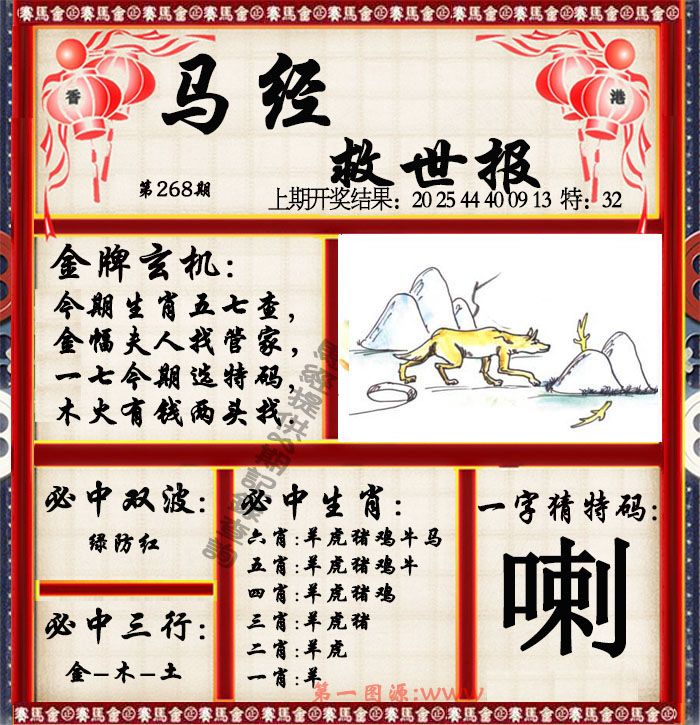 賽馬會㊣賽馬會㊣賽馬會㊣賽馬會㊣賽馬會㊣賽馬會㊣賽馬會㊣賽馬會㊣賽馬會
香
港
马经
救世报
第268期
上期开奖结果：20 25 44 40 09 13 特：32
金牌玄机：
今期生肖五七查，
金幅夫人找管家，
一七今期选特码，
木火有钱两头找.
必中双波：
绿防红
必中三行：
金–木–土
必中生肖：
六肖:羊虎猪鸡牛马
五肖:羊虎猪鸡牛
四肖:羊虎猪鸡
三肖:羊虎猪
二肖:羊虎
一肖:羊
一字猜特码:
喇
第一图源:www